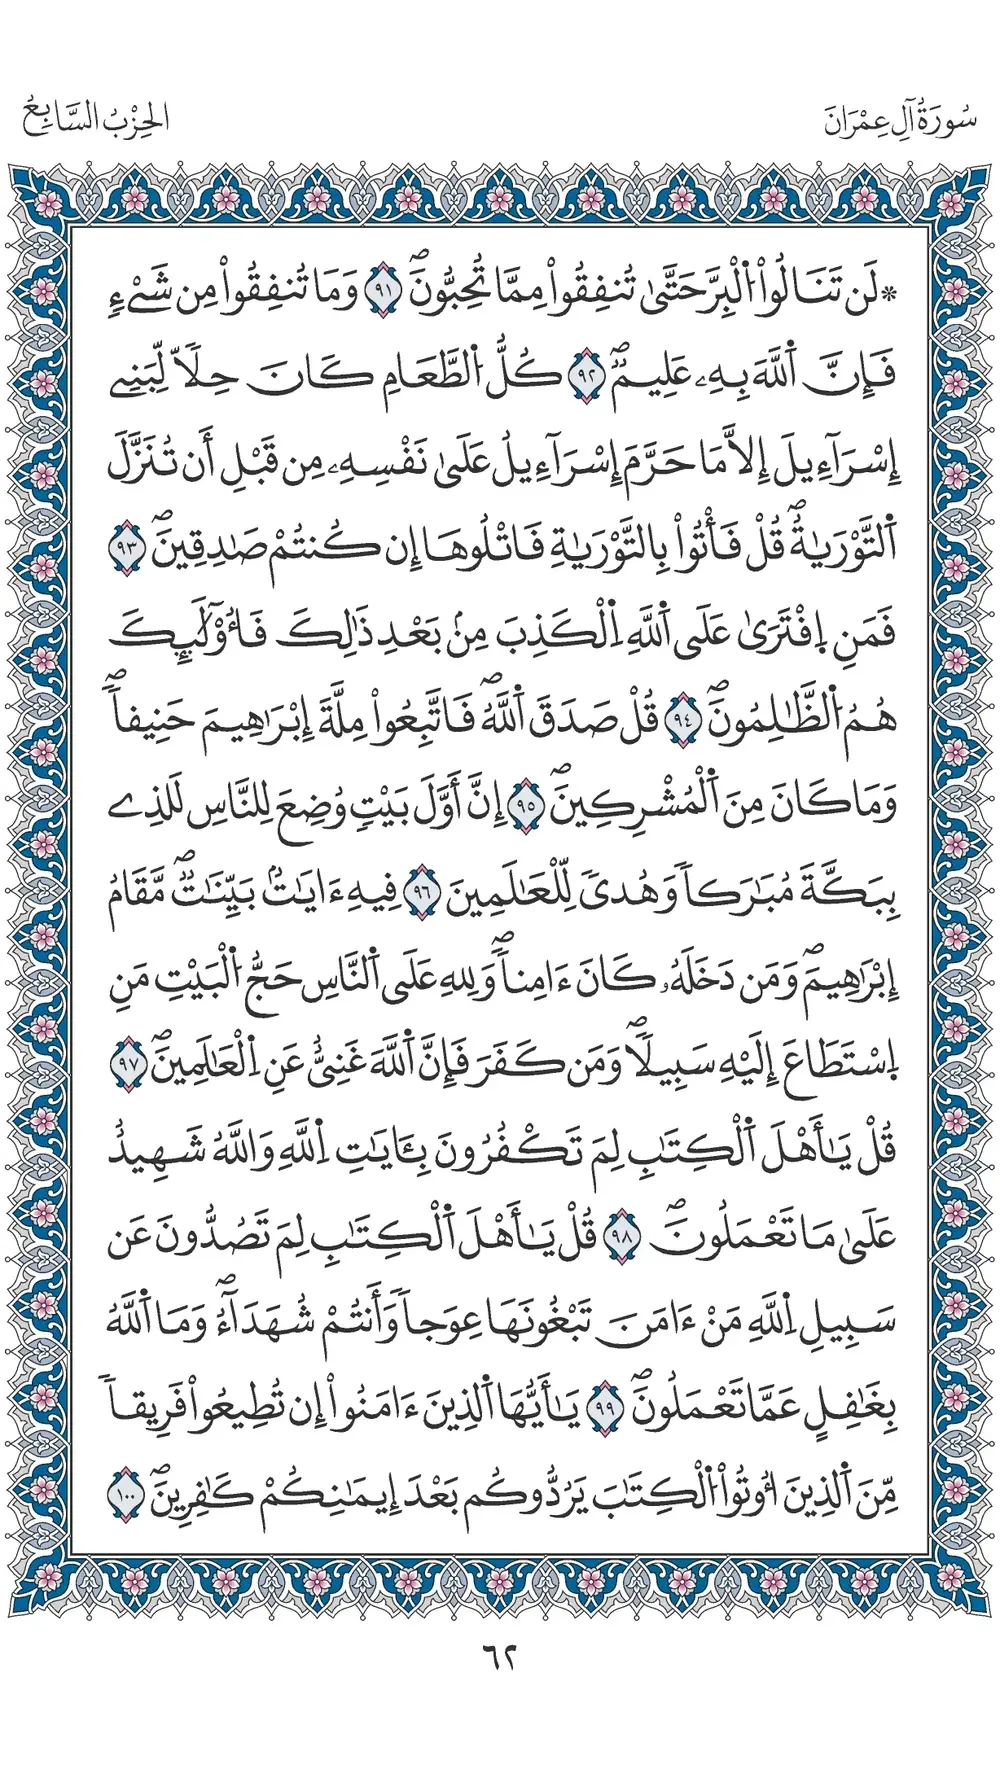 سُورَةُ آلِ عِمْرَانَ
الحِزْبُ السَّابِعُ
* لَن تَنَالُواْ اُ۬لْبِرَّ حَتَّىٰ تُنفِقُواْ مِمَّا تُحِبُّونَۖ ٩١ وَمَا تُنفِقُواْ مِن شَےْءٖ
فَإِنَّ اَ۬للَّهَ بِهِۦ عَلِيمٞۖ ٩٢ كُلُّ اُ۬لطَّعَامِ كَانَ حِلّاٗ لِّبَنِےٓ
إِسْرَآءِيلَ إِلَّا مَا حَرَّمَ إِسْرَآءِيلُ عَلَىٰ نَفْسِهِۦ مِن قَبْلِ أَن تُنَزَّلَ
اَ۬لتَّوْرَيٰةُۖ قُلْ فَأْتُواْ بِالتَّوْرَيٰةِ فَاتْلُوهَا إِن كُنتُمْ صَٰدِقِينَۖ ٩٣
فَمَنِ اِ۪فْتَرَىٰ عَلَى اَ۬للَّهِ اِ۬لْكَذِبَ مِنۢ بَعْدِ ذَٰلِكَ فَأُوْلَٰٓئِكَ
هُمُ اُ۬لظَّٰلِمُونَۖ ٩٤ قُلْ صَدَقَ اَ۬للَّهُۖ فَاتَّبِعُواْ مِلَّةَ إِبْرَٰهِيمَ حَنِيفاٗۖ
وَمَا كَانَ مِنَ اَ۬لْمُشْرِكِينَۖ ٩٥ إِنَّ أَوَّلَ بَيْتٖ وُضِعَ لِلنَّاسِ لَلَذِے
بِبَكَّةَ مُبَٰرَكاٗ وَهُدىٗ لِّلْعَٰلَمِينَ ٩٦ فِيهِ ءَايَٰتُۢ بَيِّنَٰتٞۖ مَّقَامُ
إِبْرَٰهِيمَۖ وَمَن دَخَلَهُۥ كَانَ ءَامِناٗۖ وَلِلهِ عَلَى اَ۬لنَّاسِ حَجُّ اُ۬لْبَيْتِ مَنِ
اِ۪سْتَطَاعَ إِلَيْهِ سَبِيلاٗۖ وَمَن كَفَرَ فَإِنَّ اَ۬للَّهَ غَنِيٌّ عَنِ اِ۬لْعَٰلَمِينَۖ ٩٧
قُلْ يَٰأَهْلَ اَ۬لْكِتَٰبِ لِمَ تَكْفُرُونَ بِـَٔايَٰتِ اِ۬للَّهِ وَاللَّهُ شَهِيدٌ
عَلَىٰ مَا تَعْمَلُونَۖ ٩٨ قُلْ يَٰأَهْلَ اَ۬لْكِتَٰبِ لِمَ تَصُدُّونَ عَن
سَبِيلِ اِ۬للَّهِ مَنْ ءَامَنَ تَبْغُونَهَا عِوَجاٗ وَأَنتُمْ شُهَدَآءُۖ وَمَا اَ۬للَّهُ
بِغَٰفِلٍ عَمَّا تَعْمَلُونَۖ ٩٩ يَٰأَيُّهَا اَ۬لذِينَ ءَامَنُواْ إِن تُطِيعُواْ فَرِيقاٗ
مِّنَ اَ۬لذِينَ أُوتُواْ اُ۬لْكِتَٰبَ يَرُدُّوكُم بَعْدَ إِيمَٰنِكُمْ كَٰفِرِينَۖ ١٠٠
٦٢